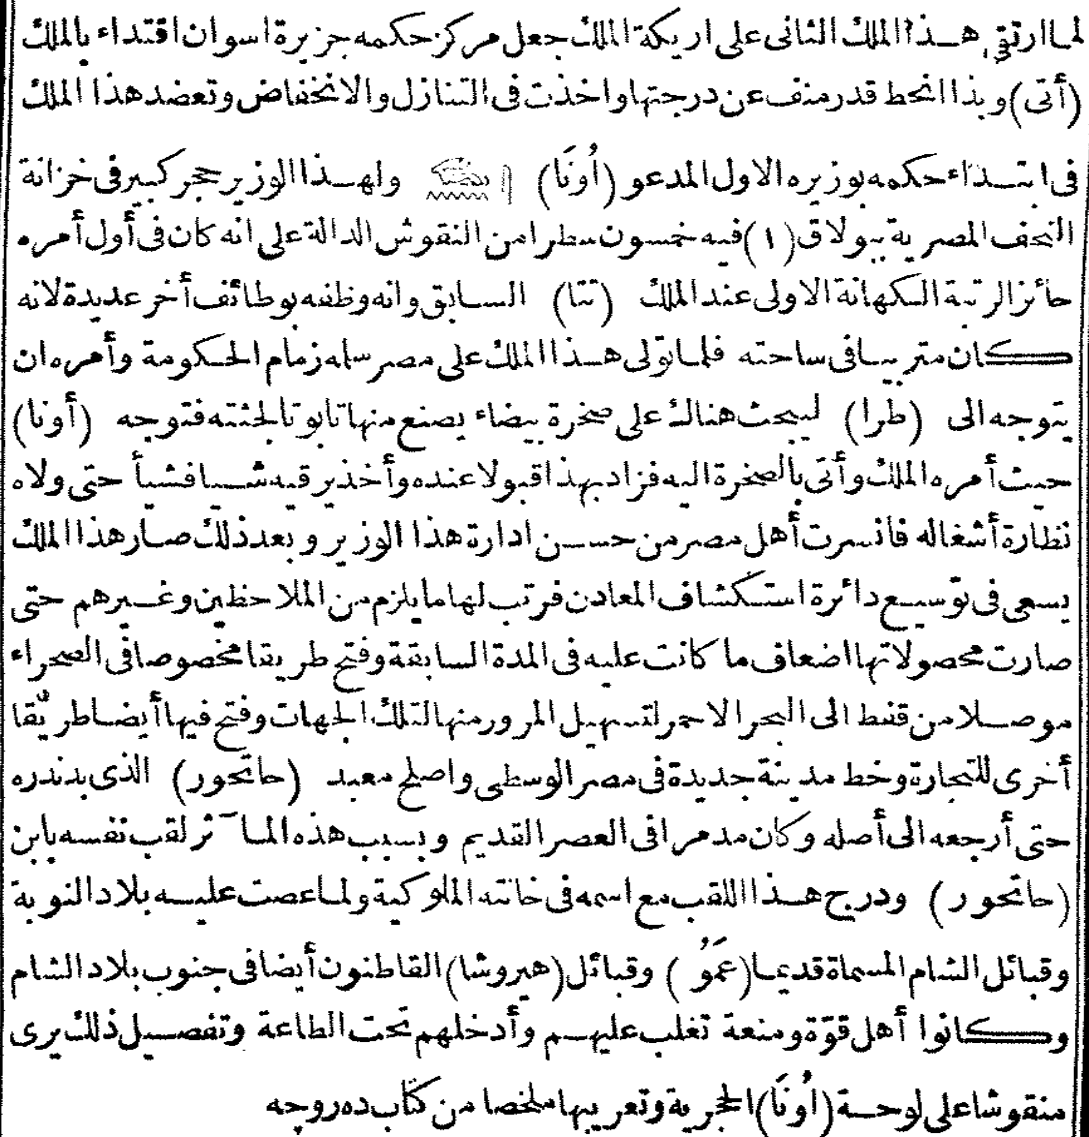 لما ارتقى هذا الملك الثانى على اريكة الملك جعل مركز حكمه جزيرة اسوان اقتداء بالملك
(أتى) وبذا انحط قدر منف عن درجتها واخذت فى التنازل والانخفاض وتعضد هذا الملك
فى ابتداء حكمه بوزيره الاول المدعو (أُونَا) ولهذا الوزير حجر كبير فى خزانة
التحف المصرية ببولاق (١) فيه خمسون سطرا من النقوش الدالة على انه كان فى أول أمره
حائزا لرتبة الكهانة الاولى عند الملك (تتا) السابق وانه وظفه بوظائف أخر عديدة لانه
كان متربيا فى ساحته فلما تولى هذا الملك على مصر سلمه زمام الحكومة وأمره ان
يتوجه الى (طرا) ليبحث هناك على صخرة بيضاء يصنع منها تابوتا لجثته فتوجه (أونا)
حيث أمره الملك وأتى بالصخرة اليه فزاد بهذا قبولا عنده وأخذ يرقيه شيافشيأ حتى ولاه
نظارة أشغاله فانسرت أهل مصر من حسن ادارة هذا الوزير وبعد ذلك صار هذا الملك
يسعى فى توسيع دائرة استكشاف المعادن فرتب لها ما يلزم من الملاحظين وغيرهم حتى
صارت محصولاتها اضعاف ما كانت عليه فى المدة السابقة وفتح طريقا مخصوصا فى الصحراء
موصلا من قفط الى البحر الاحمر لتسهيل المرور منها لتلك الجهات وفتح فيها أيضا طريقا
أخرى للتجارة وخط مدينة جديدة فى مصر الوسطى واصلح معبد (حاتحور) الذى بدندره
حتى أرجعه الى أصله وكان مدمرا فى العصر القديم وبسبب هذه المآثر لقب نفسه بابن
(حاتحور) ودرج هذا اللقب مع اسمه فى خانته الملوكية ولما عصت عليه بلاد النوبة
وقبائل الشام المسماة قديما (عَمُو) وقبائل (هيروشا) القاطنون أيضا فى جنوب بلاد الشام
وكانوا أهل قوّة ومنعة تغلب عليهم وأدخلهم تحت الطاعة وتفصيل ذلك يرى
منقوشا على لوحة (أُونَا) الحجرية وتعريبها ملخصا من كتاب ده روجه